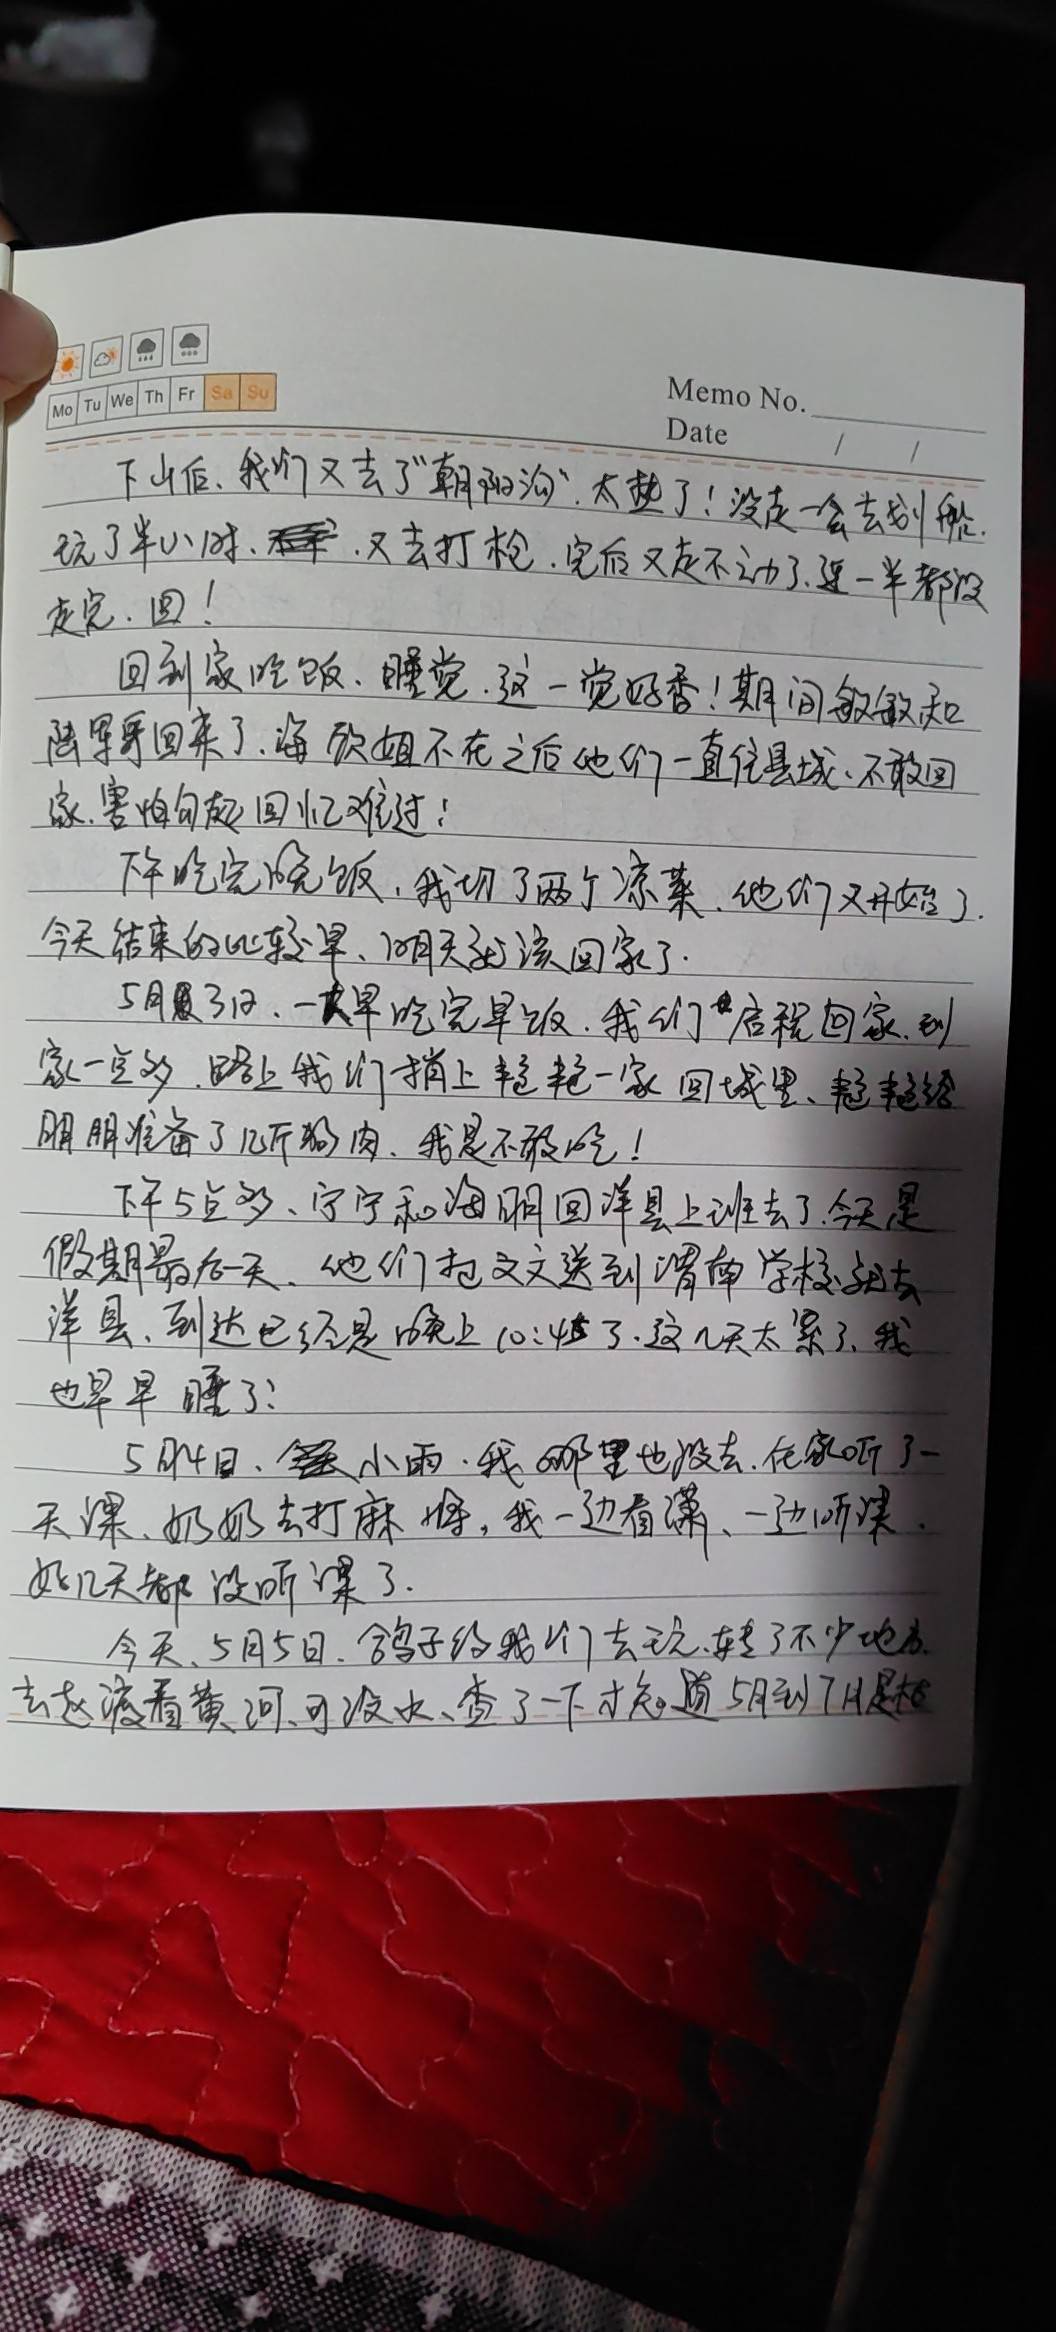 Mo Tu We Th Fr Sa Su
Memo No.
Date / /
下山后、我们又去了“朝阳沟”、太热了！没走一会去划船、
玩了半小时、又去打枪、完后又走不动了、连一半都没
走完、回！
回到家吃饭、睡觉、这一觉好香！期间敏敏和
陆军哥回来了、海欣姐不在之后他们一直住县城、不敢回
家、害怕勾起回忆难过！
下午吃完晚饭、我切了两个凉菜、他们又开始了.
今天结束的比较早、明天就该回家了.
5月3日、一大早吃完早饭、我们启程回家、到
家一点多、路上我们捎上艳艳一家回城里、艳艳给
朋朋准备了几斤狗肉、我是不敢吃！
下午5点多、宁宁和海朋回洋县上班去了、今天是
假期最后一天、他们把文文送到渭南学校就去
洋县、到达已经是晚上10:45了、这几天太累了、我
也早早睡了！
5月4日、小雨、我哪里也没去、在家听了一
天课、奶奶去打麻将，我一边看潇、一边听课、
好几天都没听课了.
今天、5月5日、鸽子约我们去玩、转了不少地方、
去赵渡看黄河、可没水、查了一下才知道5月到7月是枯